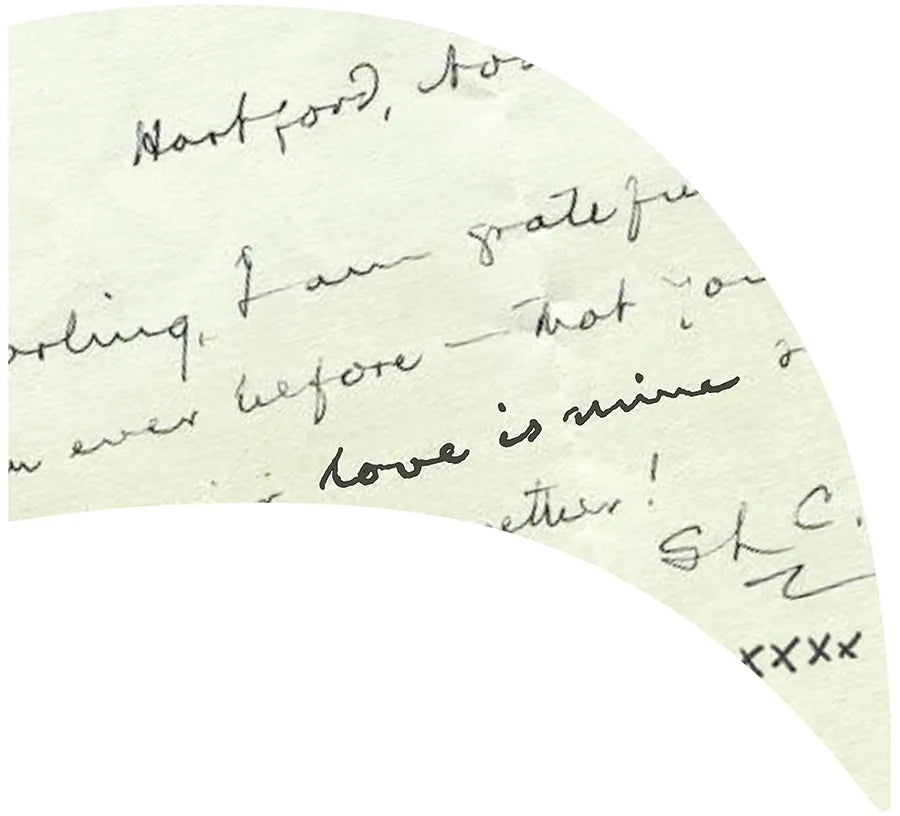 Hartford, Nov
arling, I am gratefu
ever before — that you
love is mine
ether!
S L C.
xxxx